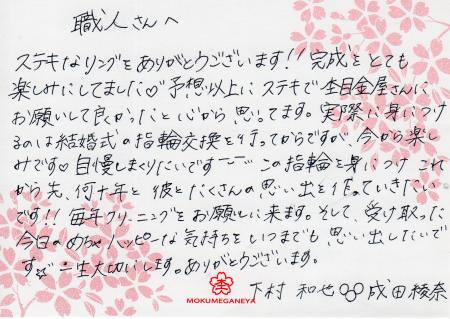 職人さんへ
ステキなリングをありがとうございます!! 完成をとても
楽しみにしてました♡ 予想以上にステキで杢目金屋さんに
お願いして良かったと心から思ってます。実際に身につけ
るのは結婚式の指輪交換を行ってからですが、今から楽し
みです♡ 自慢しまくりたいです〜〜 この指輪を身につけ これ
から先、何十年と 彼とたくさんの思い出を作っていきたい
です!! 毎年クリーニングをお願いしに来ます。そして、受け取った
今日のめちゃハッピーな気持ちをいつまでも思い出したいで
す☆ 一生大切にします。ありがとうございます。
下村 和也 成田綾奈
MOKUMEGANEYA